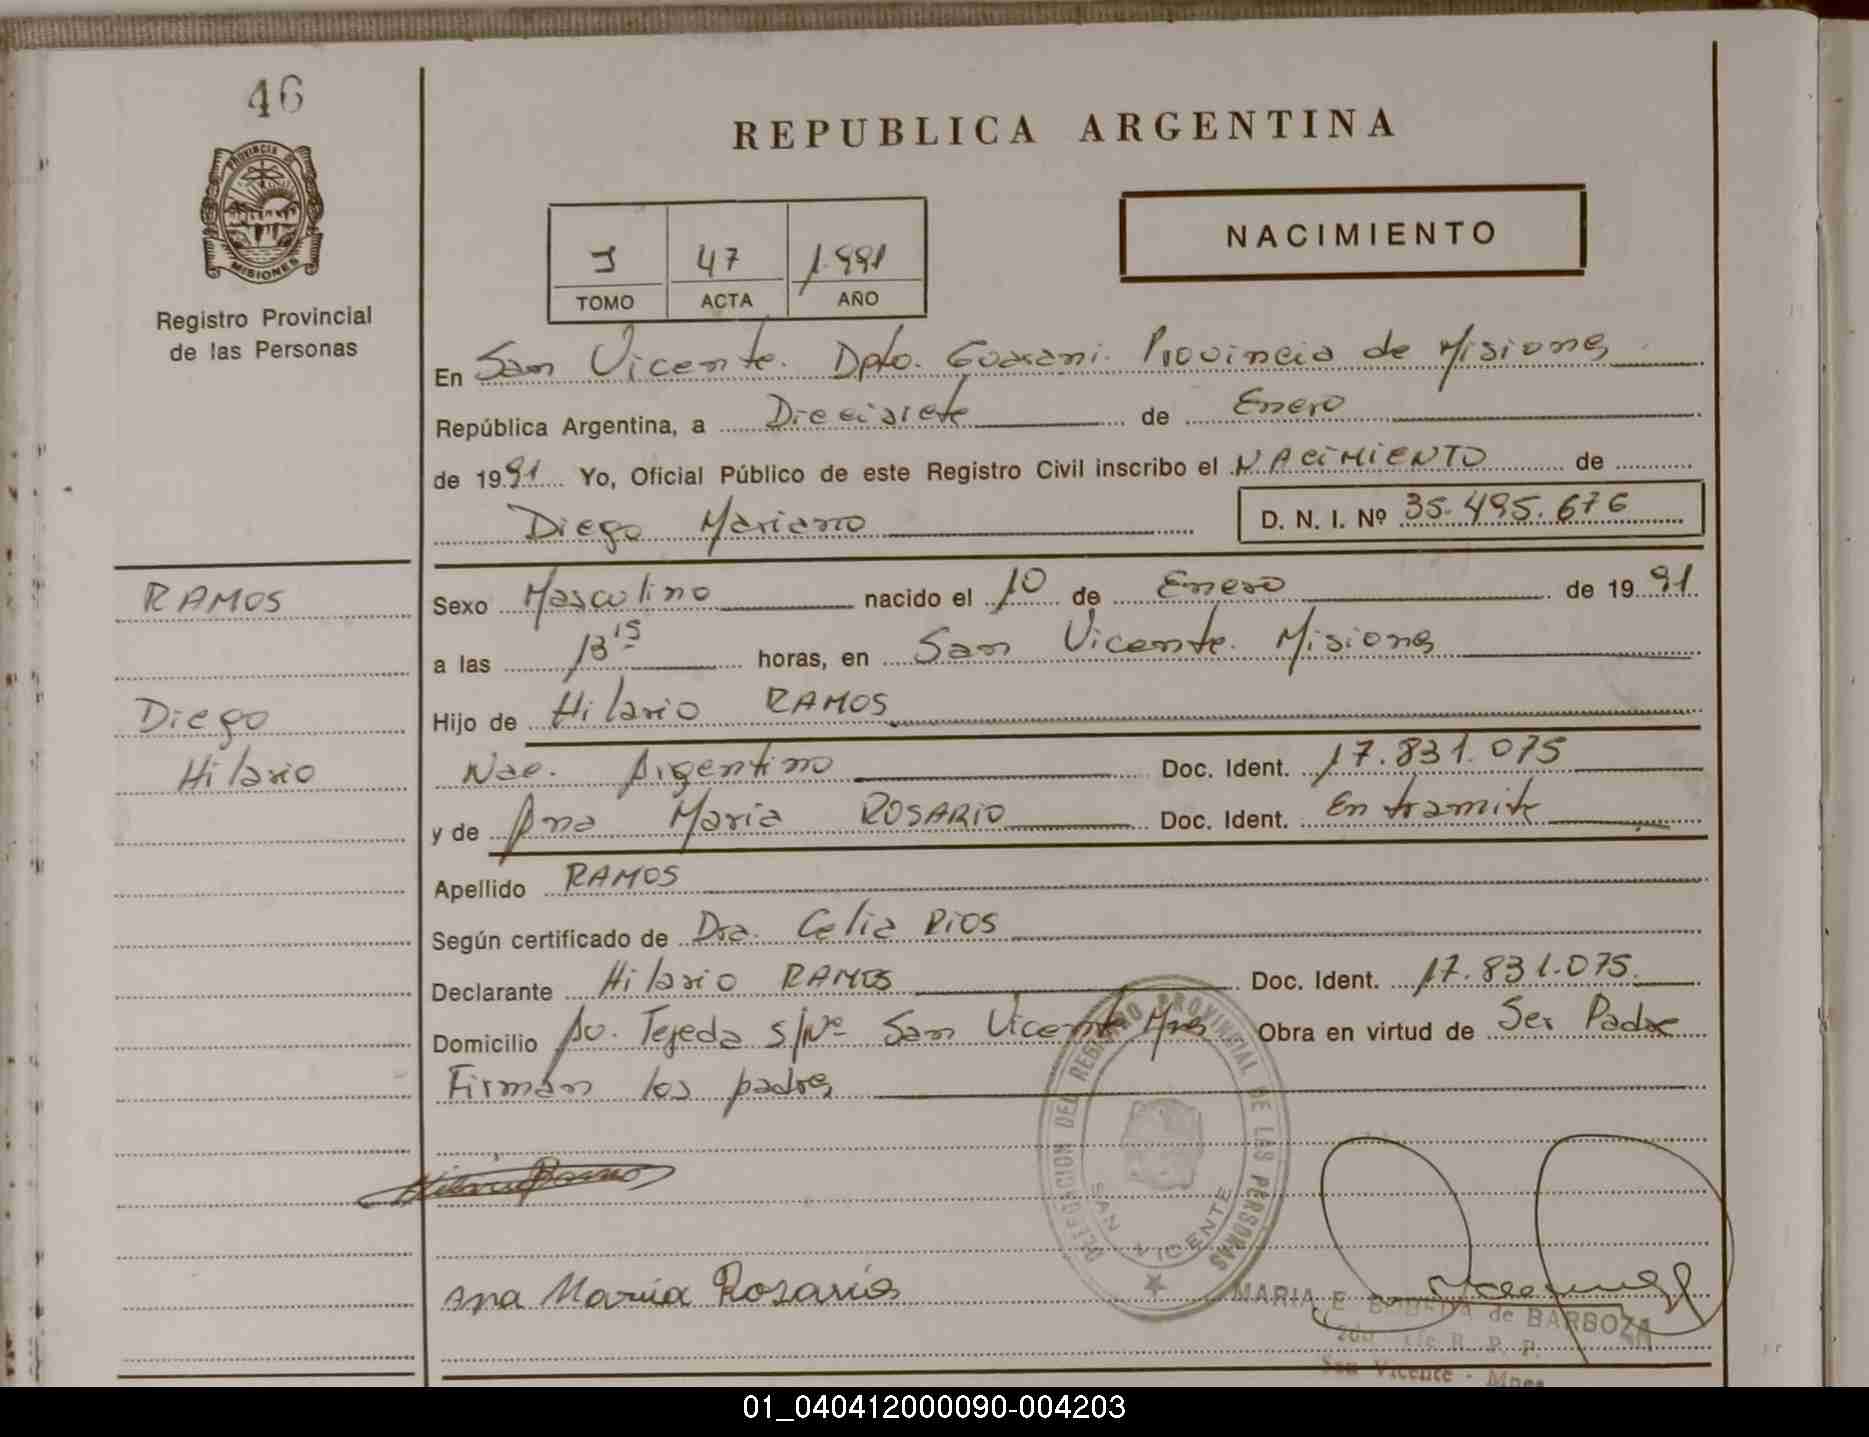 46
PROVINCIA DE
MISIONES
Registro Provincial
de las Personas
REPUBLICA ARGENTINA
NACIMIENTO
I 47 1.991
TOMO ACTA AÑO
En San Vicente. Dpto. Guarani. Provincia de Misiones
República Argentina, a Diecisiete de Enero
de 1991 Yo, Oficial Público de este Registro Civil inscribo el NACIMIENTO de
Diego Mariano D. N. I. Nº 35.495.676
RAMOS
Diego
Hilario
Sexo Masculino nacido el 10 de Enero de 1991
a las 13 15 horas, en San Vicente. Misiones
Hijo de Hilario RAMOS
Nac. Argentino Doc. Ident. 17.831.075
y de Ana Maria ROSARIO Doc. Ident. En tramite
Apellido RAMOS
Según certificado de Dra. Celia RIOS
Declarante Hilario RAMOS Doc. Ident. 17.831.075.
Domicilio Av. Tejeda S/Nº San Vicente Mnes Obra en virtud de Ser Padre
Firman los padres
DELEGACION DEL REGISTRO PROVINCIAL DE LAS PERSONAS
SAN VICENTE
Hilario Ramos
Ana Maria Rosario
MARIA E. de BARBOZA
R. P. P.
San Vicente - Mnes
01_040412000090-004203